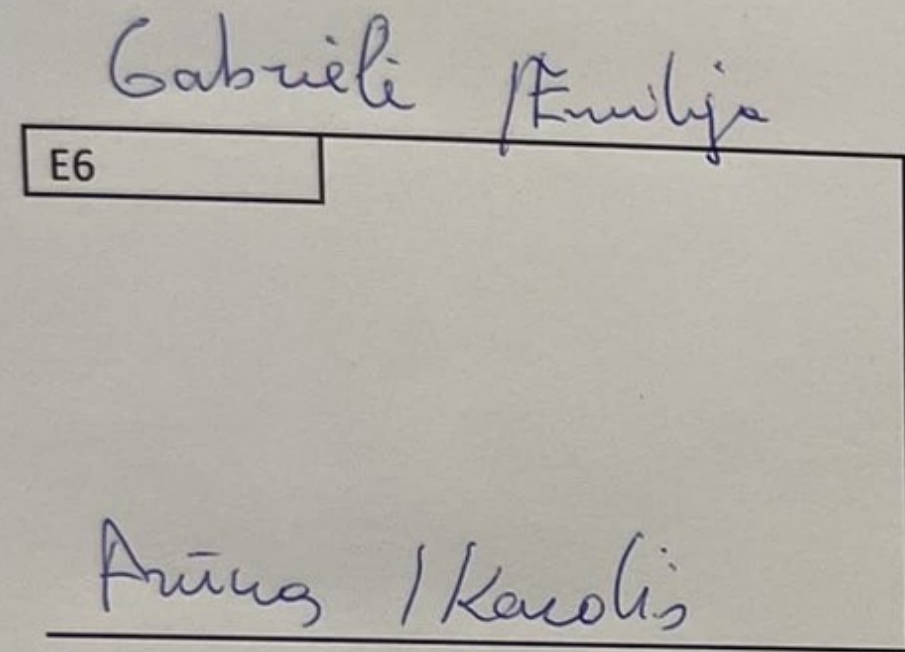 Gabrielė / Emilija
E6
Arūnas / Karolis